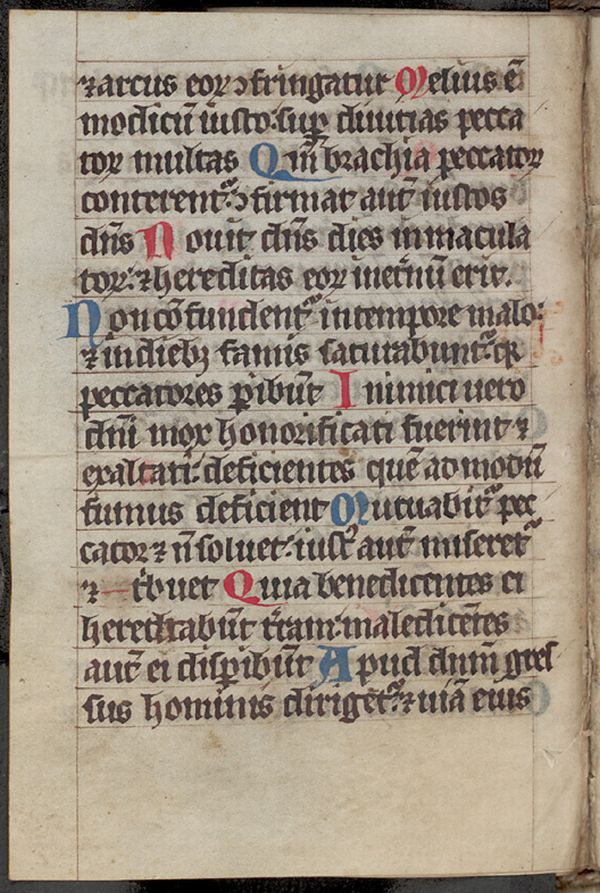 ⁊ arcus eoꝝ ↄfringatur Melius ē
modicū iusto · suꝑ diuitias pecca
toꝝ multas Qm̄ brachia peccatoꝝ
conterent᷑ : ↄfirmat aut̄ iustos
dn̄s Nouit dn̄s dies inmacula
toꝝ : ⁊ hereditas eoꝝ inet̄nū erit .
Non cōfundent᷑ in tempore malo :
⁊ in diebꝫ famis saturabunt᷑ : qꝛ
peccatores ꝑibūt Inimici uero
dn̄i mox honorificati fuerint ⁊
exaltati : deficientes quē ad modū
fumus deficient Mutuabit᷑ pec
cator ⁊ n̄ soluet : iust᷒ aut̄ miseret᷑
⁊ t̄buet Quia benedicentes ei
hereditabūt t̄ram : maledicētes
aut̄ ei disꝑibūt Apud dnm̄ gres
sus hominis diriget᷑ : ⁊ uiā eius